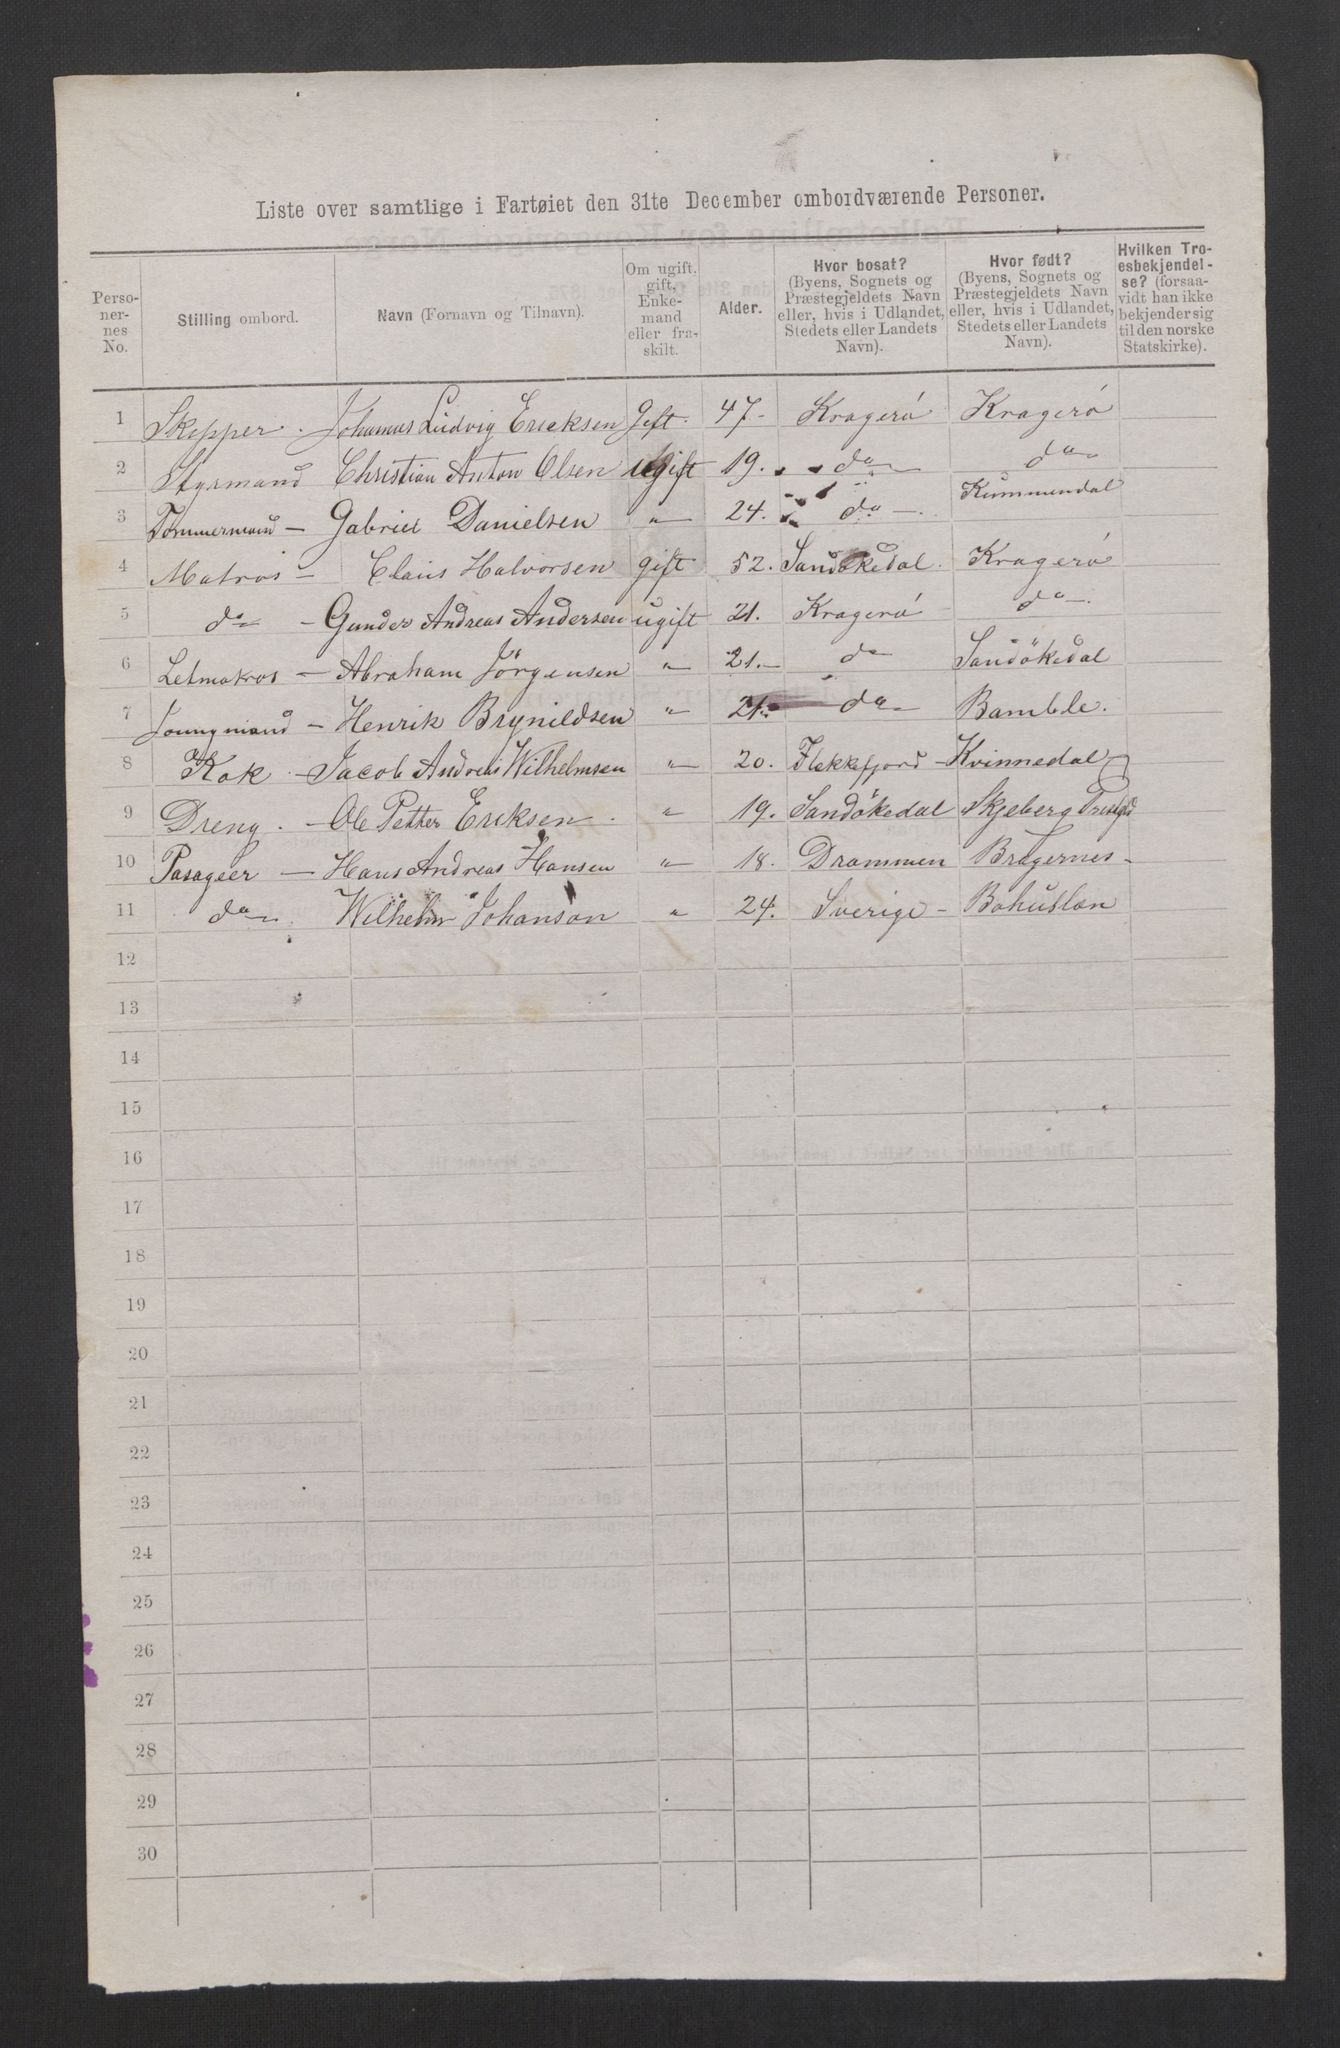 Liste over samtlige i Fartøiet den 31te December ombordværende Personer.
Perso-
ner-
nes
No.
Stilling ombord.
Navn (Fornavn og Tilnavn).
Om ugift,
gift,
Enke-
mand
eller fra-
skilt.
Alder.
Hvor bosat?
(Byens, Sognets og
Præstegjeldets Navn
eller, hvis i Udlandet,
Stedets eller Landets
Navn).
Hvor født?
(Byens, Sognets og
Præstegjeldets Navn
eller, hvis i Udlandet,
Stedets eller Landets
Navn).
Hvilken Tro-
esbekjendel-
se? (forsaa-
vidt han ikke
bekjender sig
til den norske
Statskirke).
1 Skipper. Johannes Ludvig Ericksen Gift. 47- Kragerö Kragerö
2 Styrmand Christian Anton Olsen ugift 19. do do
3 Tømmermand - Gabriel Danielsen " 24. do - Kummendal
4 Matros - Claus Halvorsen gift 52. Sandökedal. Kragerö
5 do - Gunder Andreas Andersen ugift 21. Kragerö do
6 Letmatros - Abraham Jörgensen " 21.- do Sandökedal
7 Joungmand - Henrik Brynildsen " 21.- do Bamble.
8 Kok - Jacob Andreas Wilhelmsen " 20. Flekkefjord - Kvinnedal
9 Dreng. - Ole Petter Ericksen. " 19. Sandökedal Skjeberg
10 Pasageer - Hans Andreas Hansen " 18. Drammen Bragernes -
11 do Wilhelm Johanson " 24. Sverige - Bohuslan
12
13
14
15
16
17
18
19
20
21
22
23
24
25
26
27
28
29
30